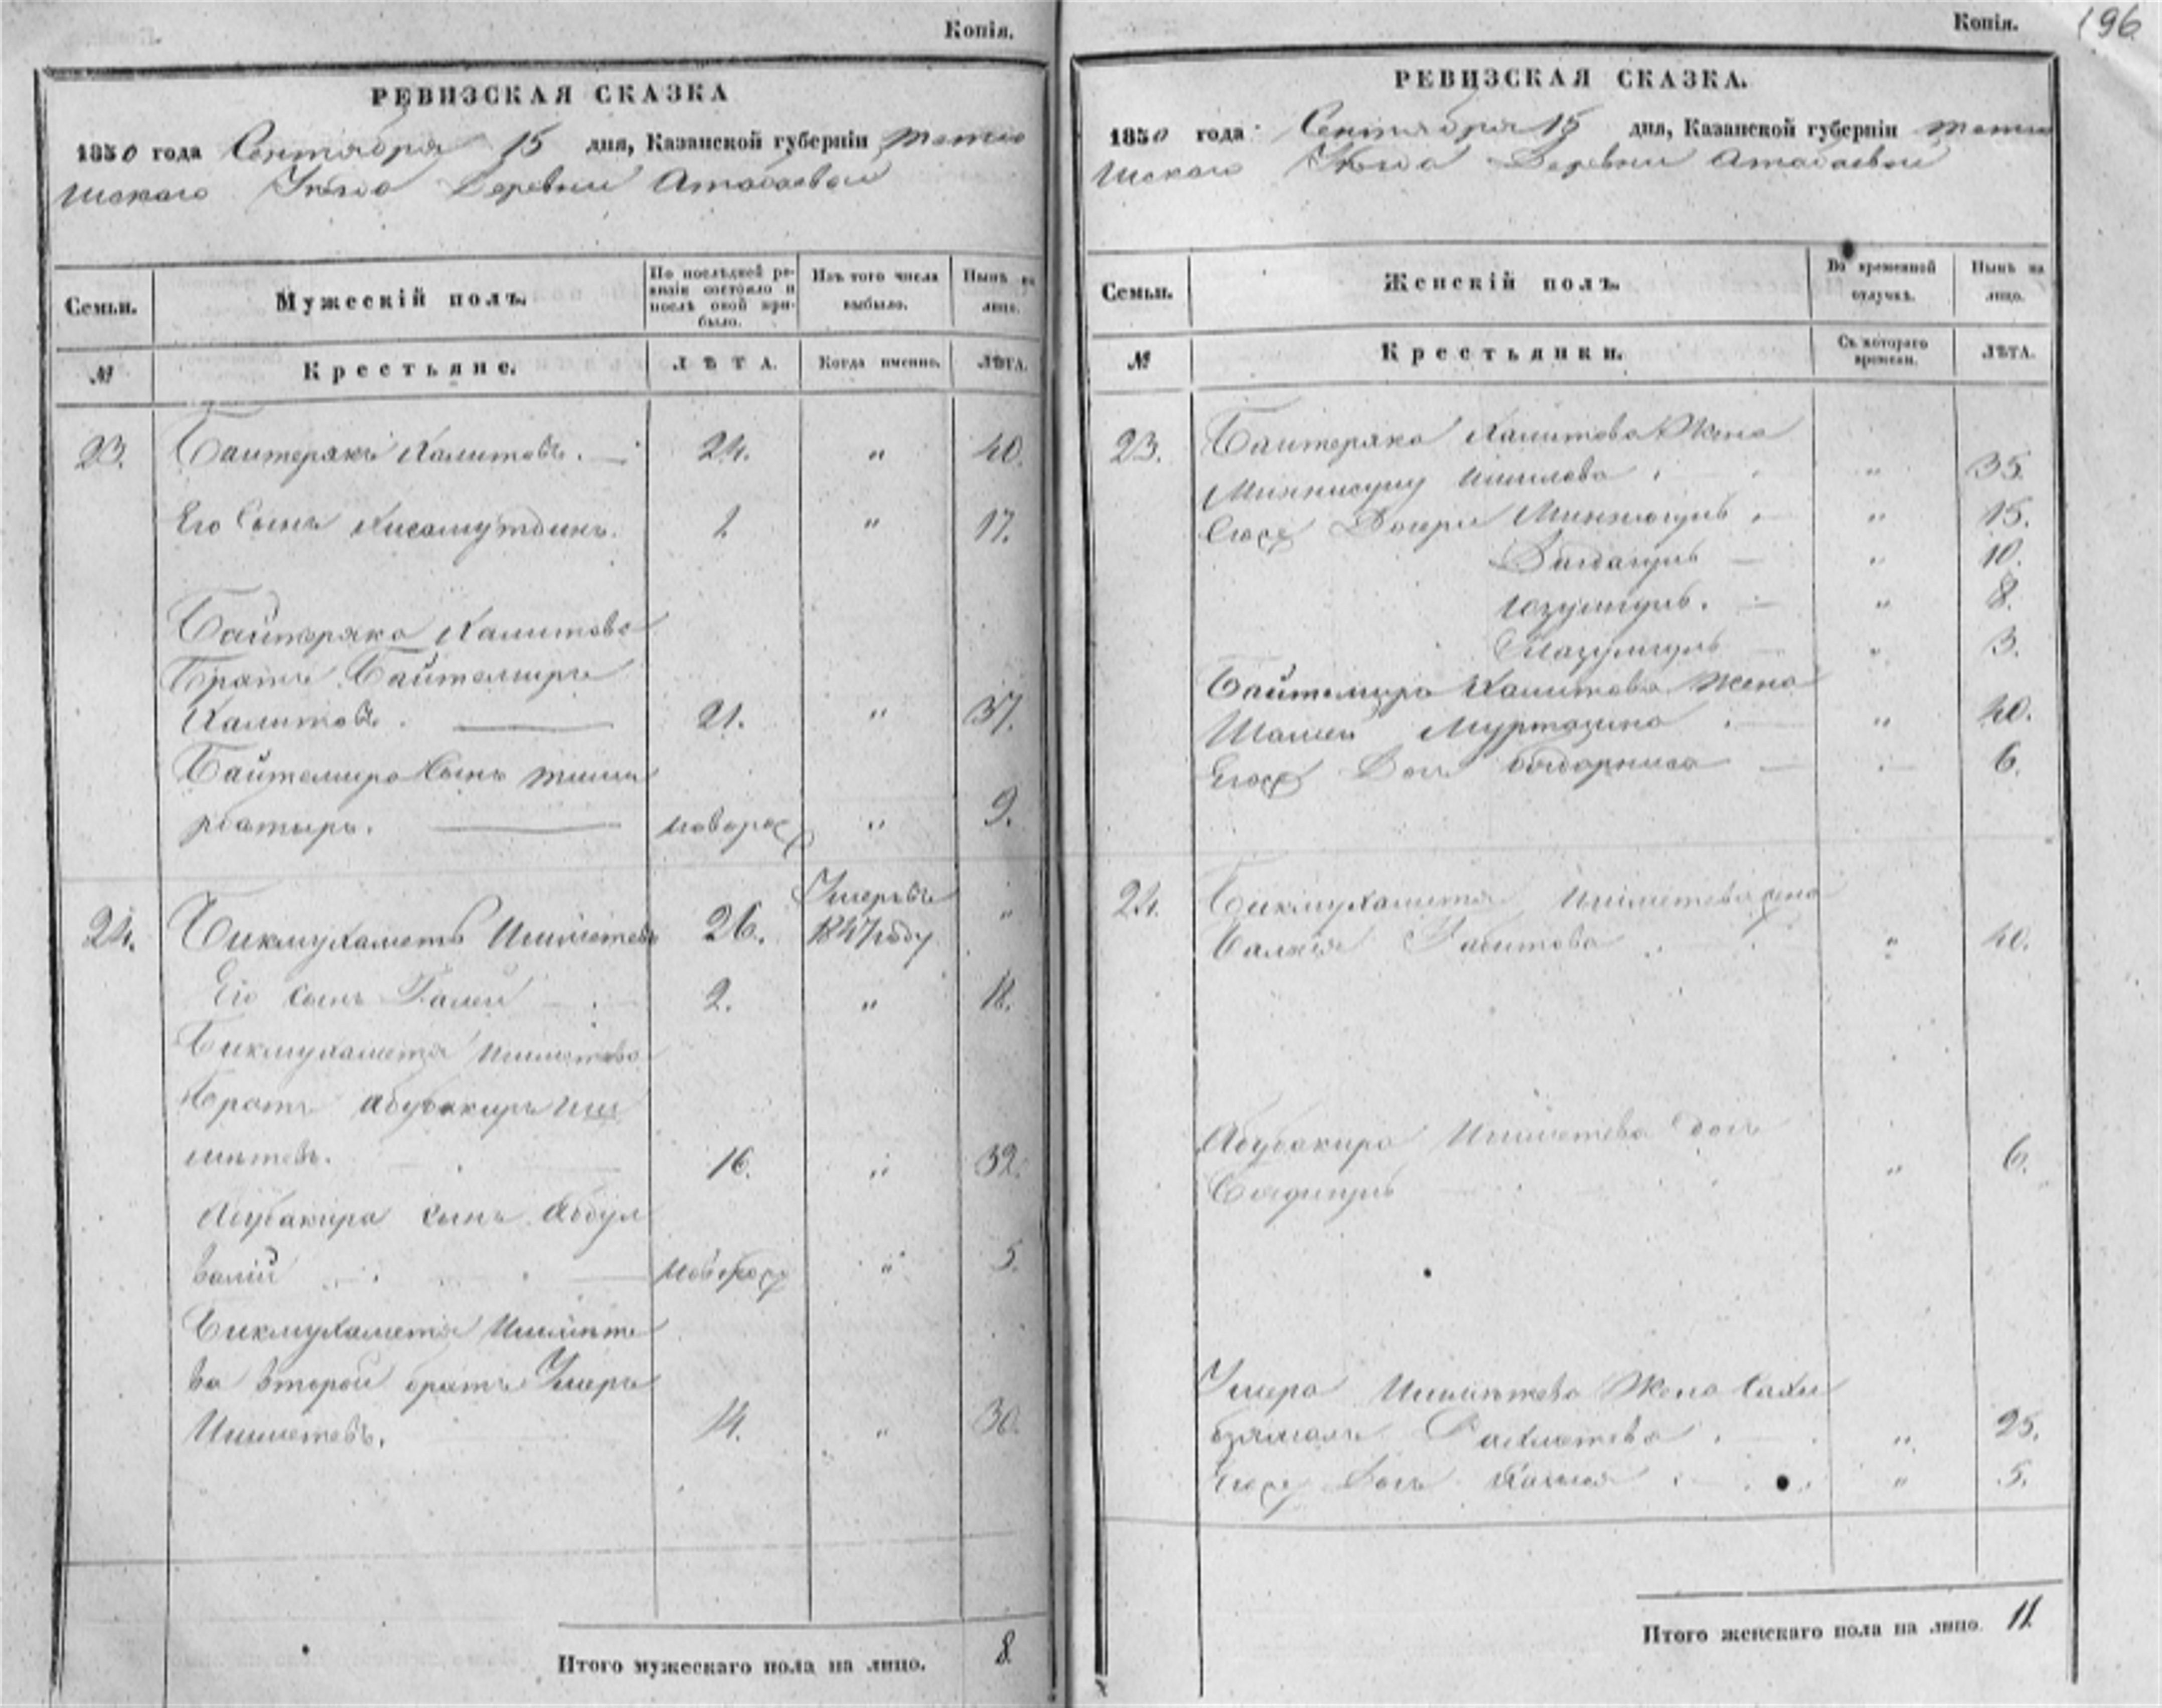 Копія.
РЕВИЗСКАЯ СКАЗКА
1850 года Сентября 15 дня, Казанской губерніи Тетю
шскаго Уѣзда Деревни Атабаевой
Семьи.
Мужескій полъ.
По послѣдней ре-
визіи состояло и
послѣ оной при-
было.
Изъ того числа
выбыло.
Нынѣ на
лицо.
№
Крестьяне.
ЛѢТА.
Когда именно.
ЛѢТА.
23. Баитерякъ Халитовъ. 24. " 40.
Его Сынъ Хисамутдинъ. 1. " 17.
Байтеряка Халитова
Братъ Байтемиръ
Халитовъ. 21. " 37.
Байтемира Сынъ Тими
рбатыръ. новорож " 9.
24. Бикмухаметъ Ишметевъ 26. Умеръ въ 1847 году "
Его сынъ Галей 2. " 18.
Бикмухаметя Ишметева
Братъ Абубакиръ Иш
метевъ. 16. " 32.
Абубакира сынъ Абдул
валій новорож " 5.
Бикмухаметя Ишмете
ва второй братъ Умеръ
Ишметевъ. 14. " 30.
Итого мужескаго пола на лицо. 8
Копія.
196
РЕВИЗСКАЯ СКАЗКА.
1850 года Сентября 15 дня, Казанской губерніи Тетю
шскаго Уѣзда Деревни Атабаевой
Семьи.
Женскій полъ.
Во временной
отлучкѣ.
Нынѣ на
лицо.
№
Крестьянки.
Съ котораго
времени.
ЛѢТА.
23. Баитеряка Халитова Жена
" 35.
Дочери " 15.
" 10.
" 8.
" 3.
Байтемира Халитова Жена
Муртазина " 40.
Дочь 6.
24. Бикмухаметя Ишметева жена
Габитова " 40.
Абубакира Ишметева дочь
" 6.
Умера Ишметева Жена Сахи
бзямалъ Рахметева " 25.
Дочь " 5.
Итого женскаго пола на лицо 11